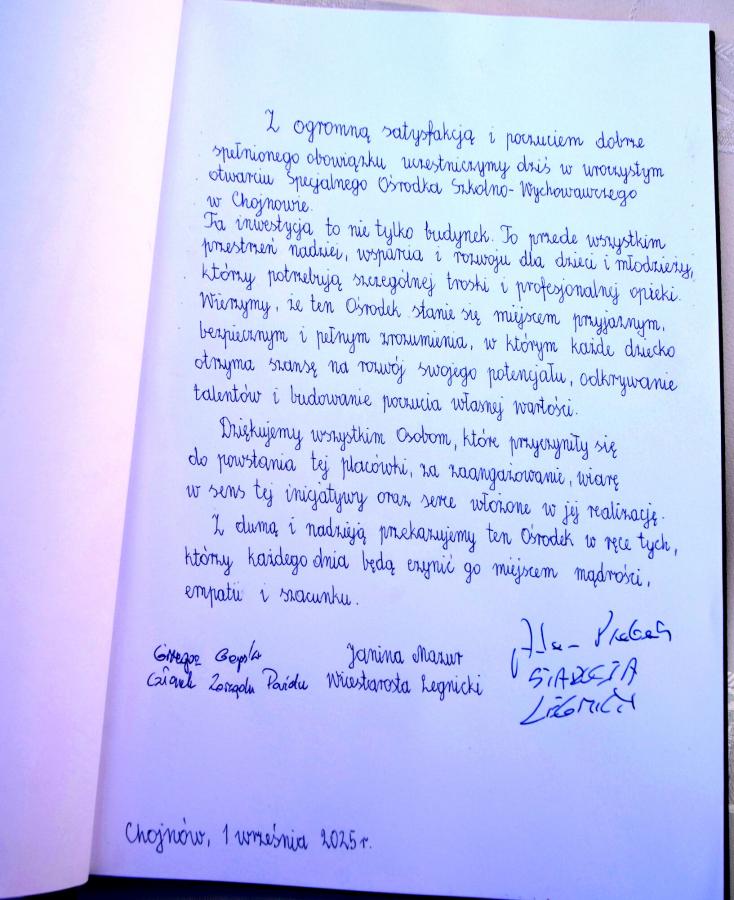 Z ogromną satysfakcją i poczuciem dobrze
spełnionego obowiązku uczestniczymy dziś w uroczystym
otwarciu Specjalnego Ośrodka Szkolno-Wychowawczego
w Chojnowie.
Ta inwestycja to nie tylko budynek. To przede wszystkim
przestrzeń nadziei, wsparcia i rozwoju dla dzieci i młodzieży,
którzy potrzebują szczególnej troski i profesjonalnej opieki.
Wierzymy, że ten Ośrodek stanie się miejscem przyjaznym,
bezpiecznym i pełnym zrozumienia, w którym każde dziecko
otrzyma szansę na rozwój swojego potencjału, odkrywanie
talentów i budowanie poczucia własnej wartości.
Dziękujemy wszystkim Osobom, które przyczyniły się
do powstania tej placówki, za zaangażowanie, wiarę
w sens tej inicjatywy oraz serce włożone w jej realizację.
Z dumą i nadzieją przekazujemy ten Ośrodek w ręce tych,
którzy każdego dnia będą czynić go miejscem mądrości,
empatii i szacunku.
Grzegorz
Członek Zarządu Powiatu
Janina Mazur
Wicestarosta Legnicki
Adam
STAROSTA
LEGNICKI
Chojnów, 1 września 2025 r.